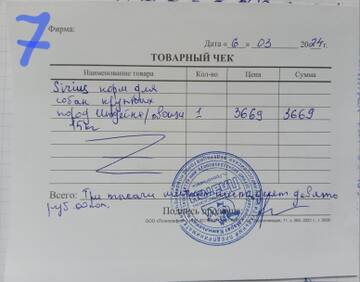 7
Фирма:
Дата « 6 » 03 2024г.
ТОВАРНЫЙ ЧЕК
Наименование товара Кол-во Цена Сумма
Sirius корм для
собак крупных
пород Индейка/овощи 1 3669 3669
15кг
Всего: Три тысячи шестьсот шестьдесят девять
руб 00коп.
Подпись продавца